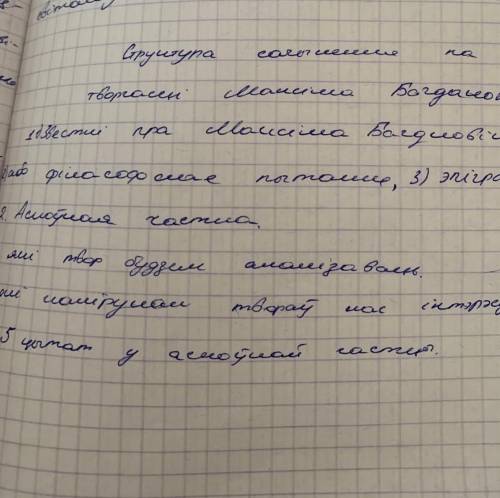 Структура сачынення па
творчасці Максіма Багданов
звесткі пра Максіма Багдновіч
або філасофскае пытанне, 3) эпігра
2. Асноўная частка.
які твор будзем аналізаваць.
накірунак твораў нас інтэрэс
5 цытат у асноўнай частцы.